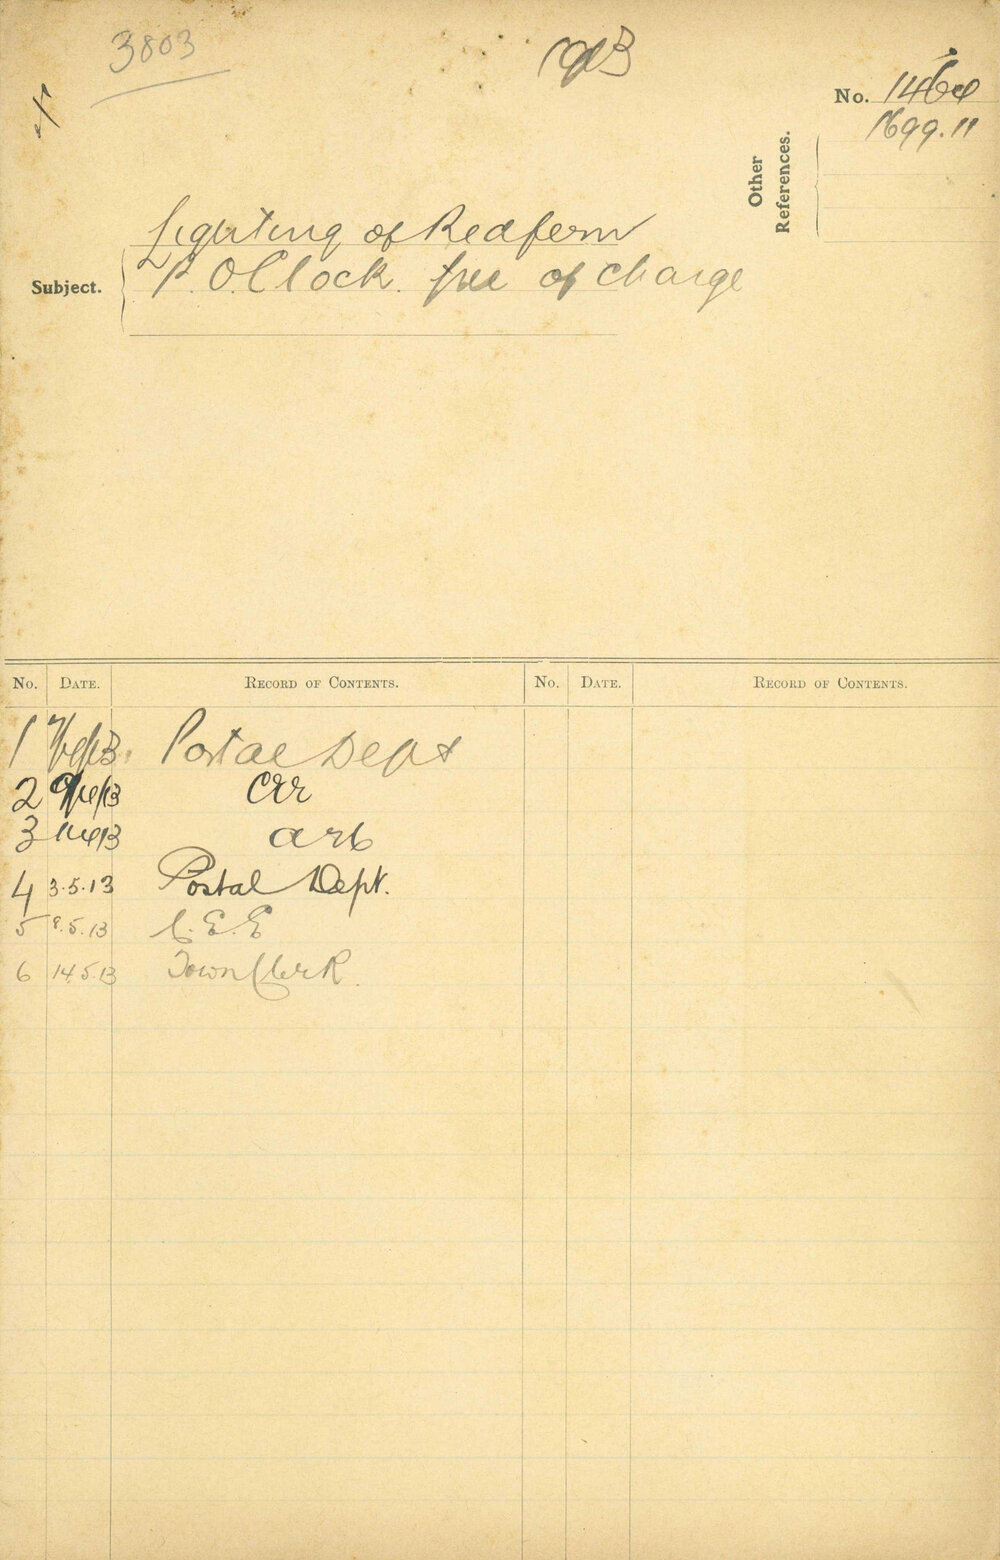 3803
1913
No. 1464
1699.11
Other
References.
Lighting of Redfern
Subject. P. O. Clock. free of charge
No. DATE. RECORD OF CONTENTS. No. DATE. RECORD OF CONTENTS.
1 Postal Dept
2
3
4 3.5.13 Postal Dept.
5 8.5.13 C.E.E
6 14.5.13 Town Clerk.